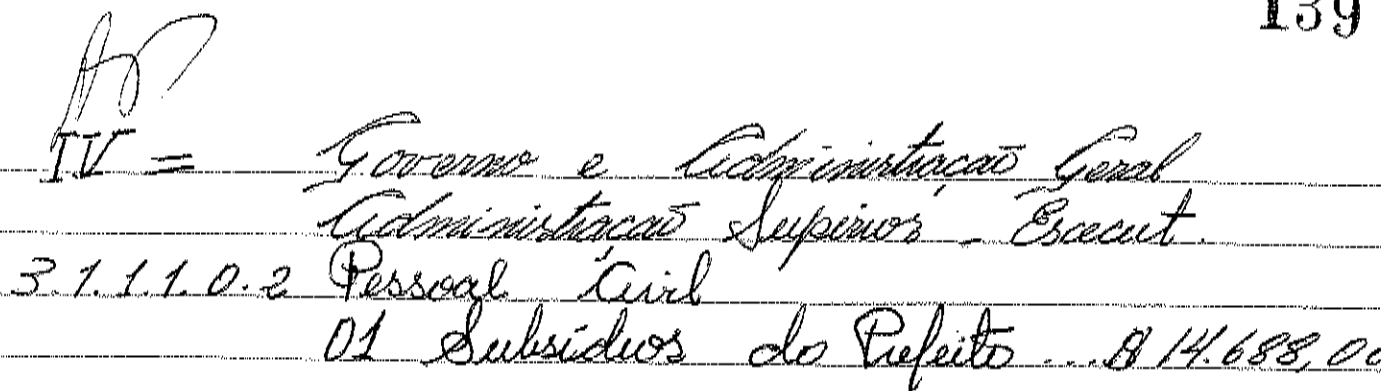 139
IV = Governo e Administração Geral
Administração Superior - Execut.
3.1.1.1.0.2 Pessoal Civil
01 Subsídios do Prefeito ... 14.688,00